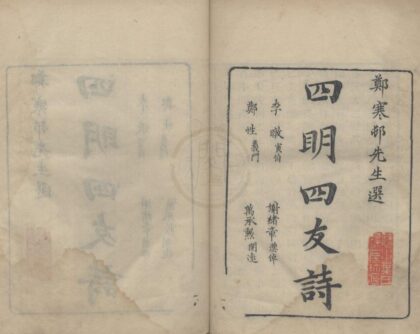 鄭寒邨先生選
四明四友詩
李暾寅伯
謝緒章
鄭性義門
萬承勳開遠